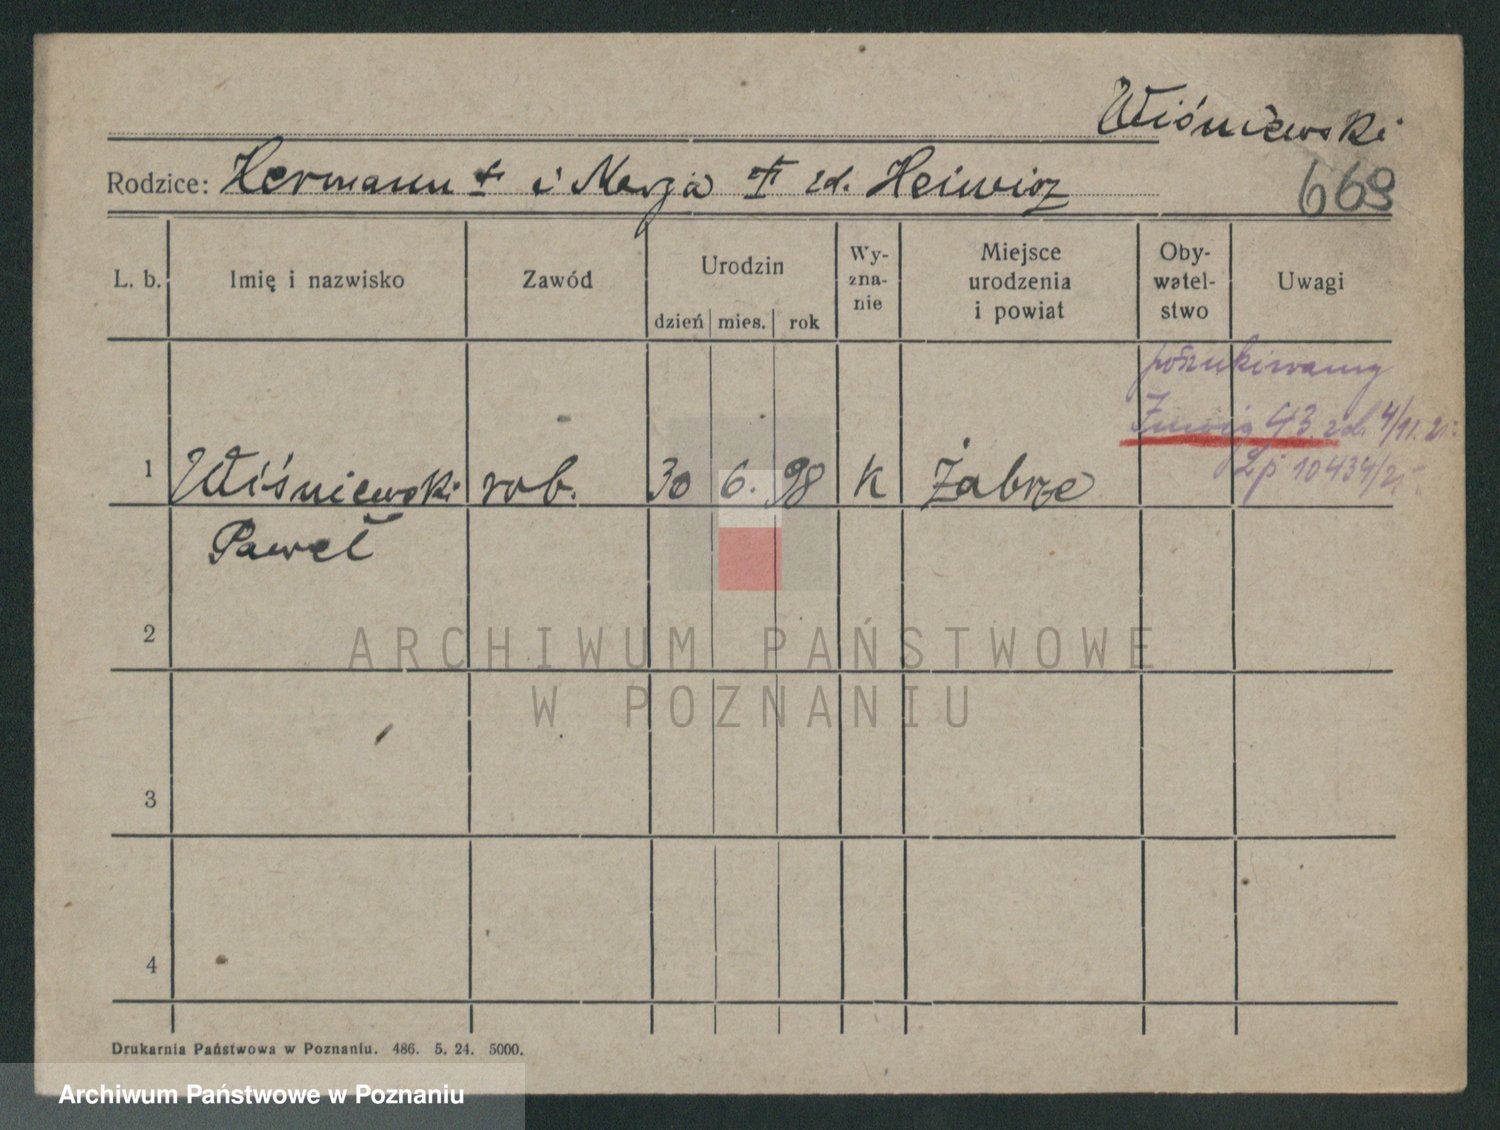 Wiśniewski
Rodzice: Hermann † i Marja † zd. Heinrich
669
L. b. Imię i nazwisko Zawód Urodzin dzień mies. rok Wy-zna-nie Miejsce urodzenia i powiat Oby-watel-stwo Uwagi
poszukiwany
43. 4/11. 21.
1 Wiśniewski rob. 30 6. 98 k Zabrze Lp 10434/21
Paweł
2
ARCHIWUM PAŃSTWOWE
W POZNANIU
3
4
Drukarnia Państwowa w Poznaniu. 486. 5. 24. 5000.
Archiwum Państwowe w Poznaniu